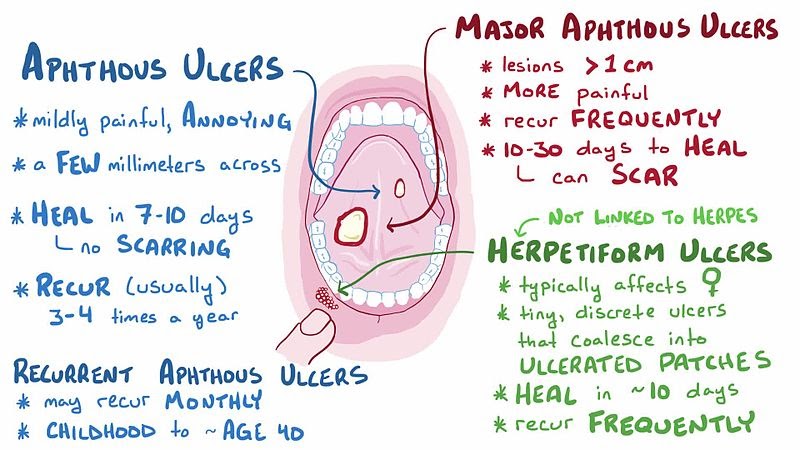 APHTHOUS ULCERS
* mildly painful, ANNOYING
* a FEW millimeters across
* HEAL in 7-10 days
no SCARRING
* RECUR (usually)
3-4 times a year
RECURRENT APHTHOUS ULCERS
* may recur MONTHLY
* CHILDHOOD to ~AGE 40
MAJOR APHTHOUS ULCERS
* lesions >1cm
* MORE painful
* recur FREQUENTLY
* 10-30 days to HEAL
can SCAR
NOT LINKED TO HERPES
HERPETIFORM ULCERS
* typically affects ♀
* tiny, discrete ulcers
that coalesce into
ULCERATED PATCHES
* HEAL in ~10 days
* recur FREQUENTLY